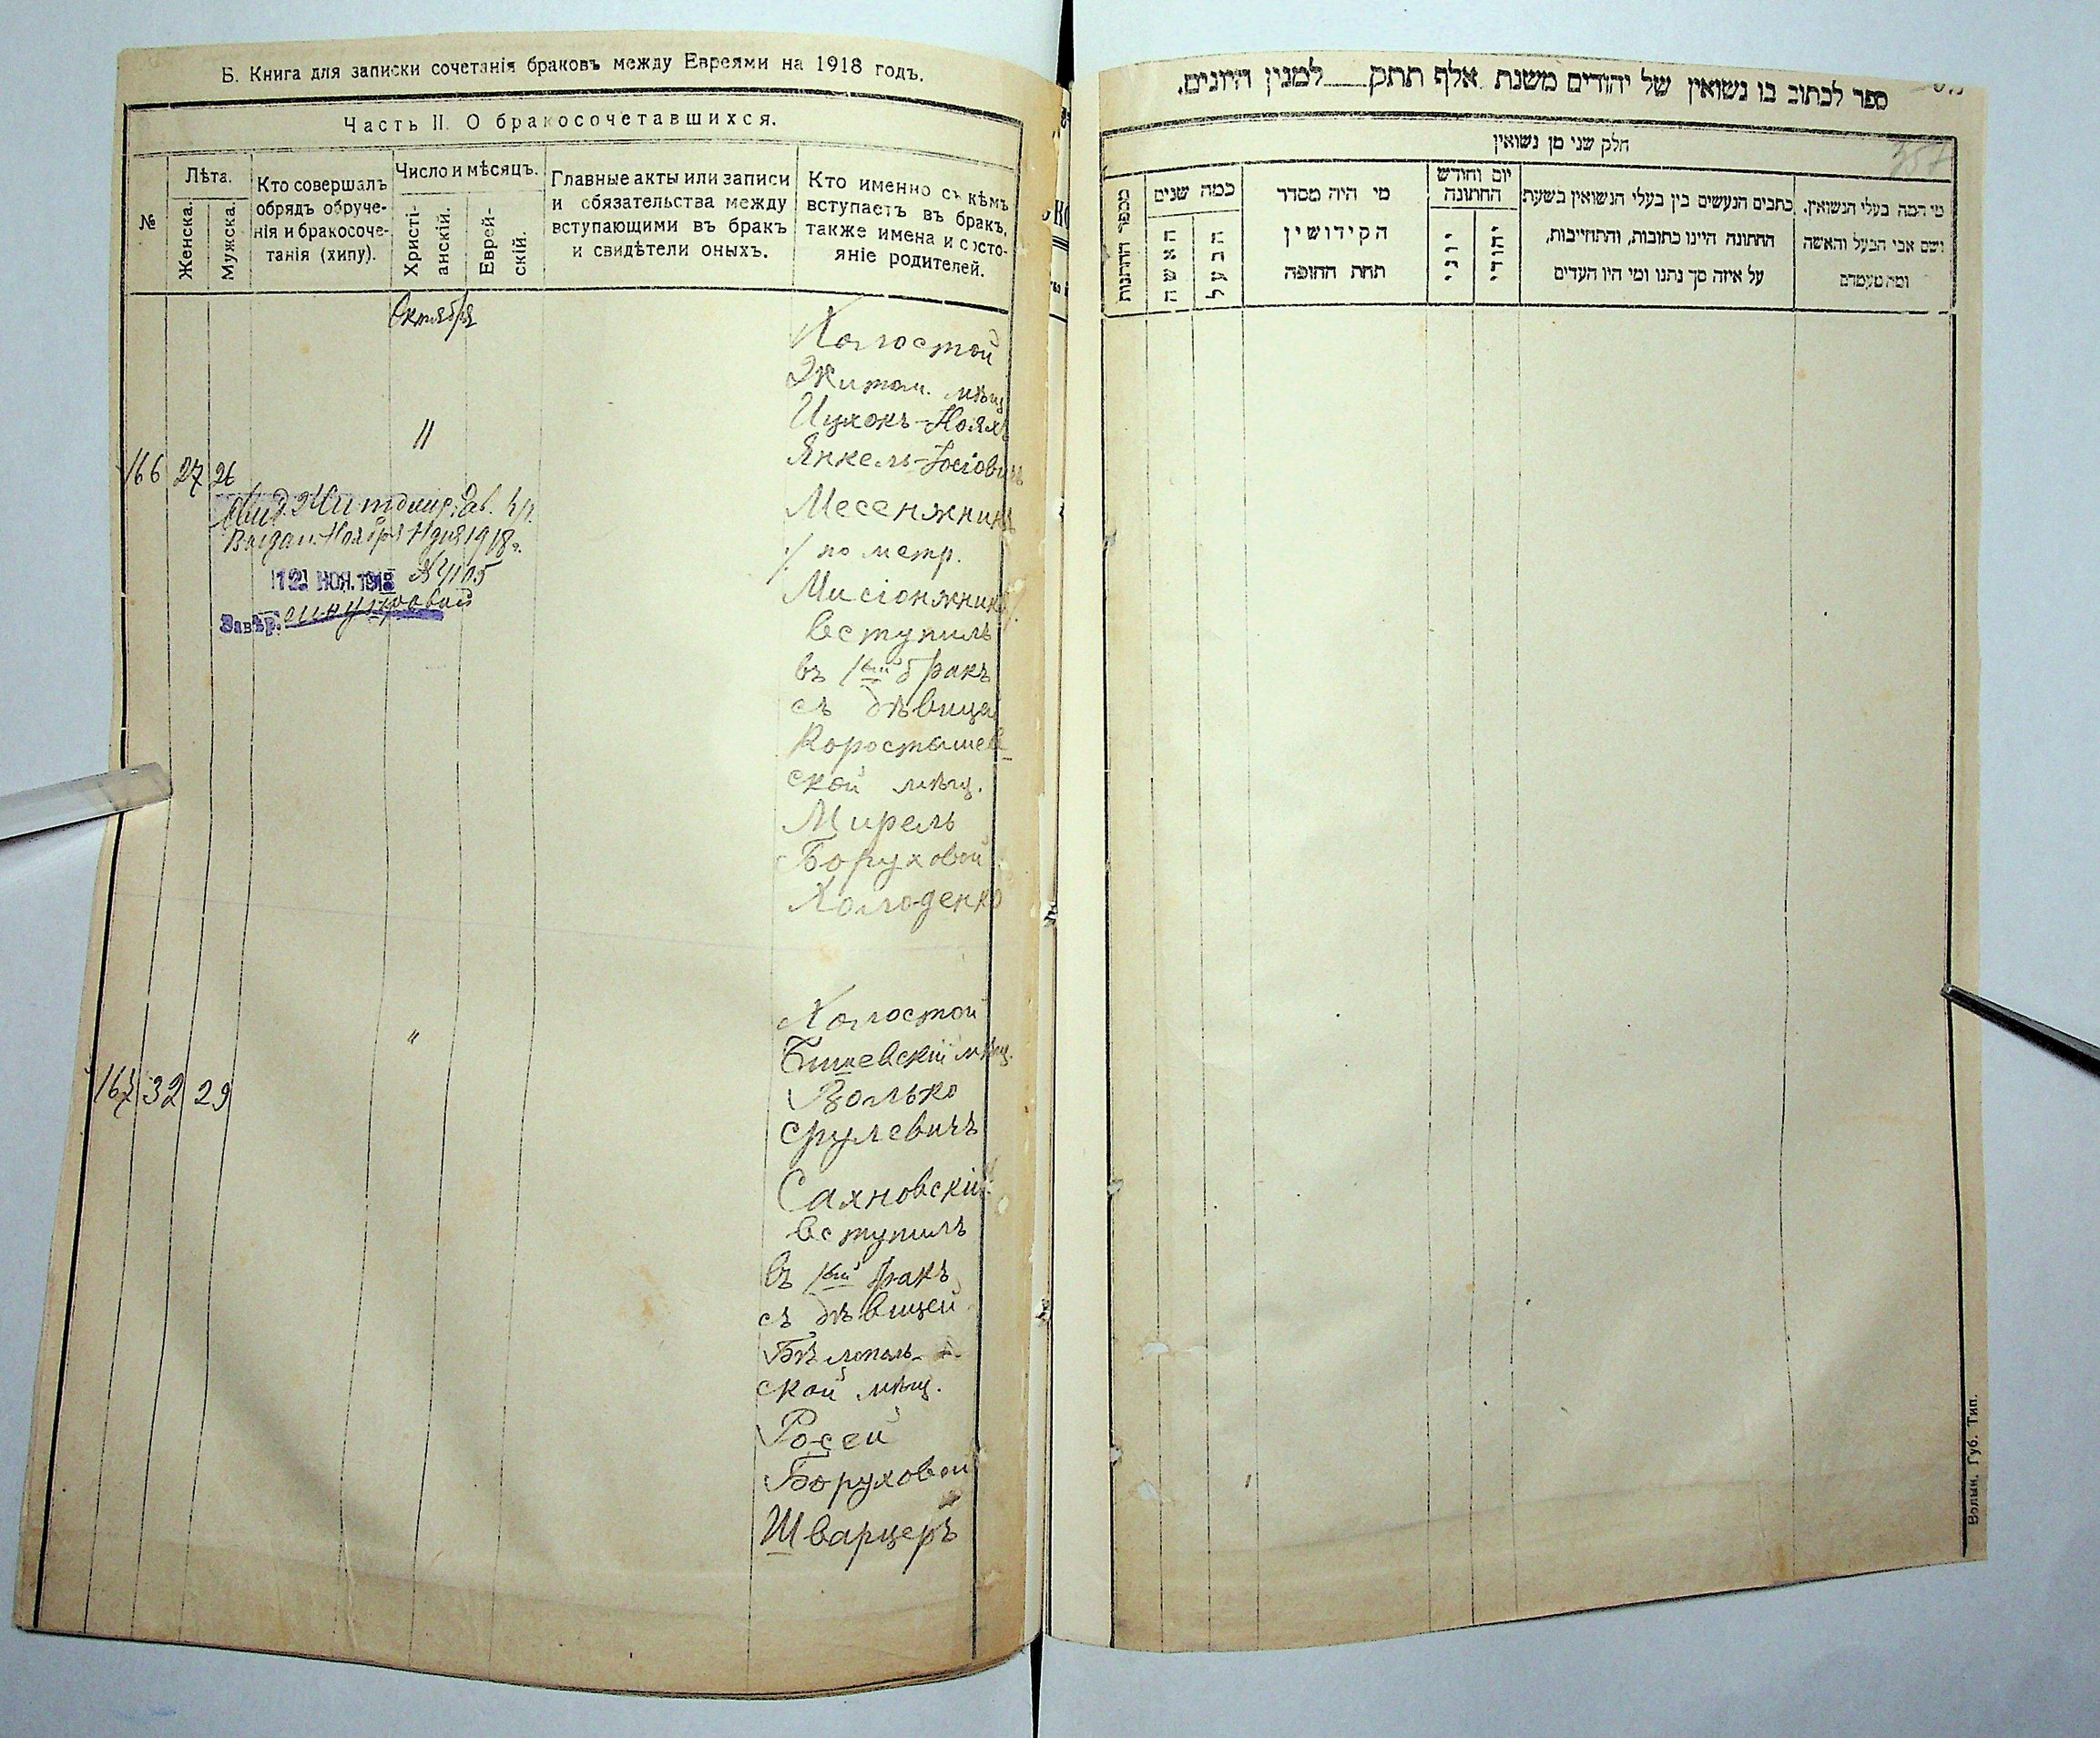 Б. Книга для записки сочетанія браковъ между Евреями на 1918 годъ.
Часть II. О бракосочетавшихся.
№
Лѣта.
Женска.
Мужска.
Кто совершалъ
обрядъ обруче-
нія и бракосоче-
танія (хипу).
Число и мѣсяцъ.
Христі-
анскій.
Еврей-
скій.
Главные акты или записи
и обязательства между
вступающими въ бракъ
и свидѣтели оныхъ.
Кто именно съ кѣмъ
вступаетъ въ бракъ,
также имена и состо-
яніе родителей.
Октября
166 27 26
11
Холостой
Житом. мѣщ
Ицхокъ-Ноях
Янкель-Іосіовичъ
Месенжникъ
/ по метр.
Мисіонжникъ/.
вступилъ
въ 1вый бракъ
съ дѣвицей
Коростышев-
ской мѣщ.
Мирель
Боруховой
Холоденко
Выдан. Ноября 11 дня 1918 г.
№ 4105
12 НОЯ. 1918
Завѣр.
167 32 29
"
Холостой
мѣщ.
Волько
Срулевичъ
Сахновскій
вступилъ
въ 1вый бракъ
съ дѣвицей
Бѣлополь-
ской мѣщ.
Росей
Боруховой
Шварцеръ
ספר לכתוב בו נשואין של יהודים משנת אלף תתק למנין היונים.
357
חלק שני מן נשואין
מספר החתונות
כמה שנים
האשה
הבעל
מי היה מסדר
הקידושין
תחת החופה
יום וחודש
החתונה
יוני
יהודי
כתבים הנעשים בין בעלי הנשואין בשעת
החתונה היינו כתובות, והתחייבות,
על איזה סך נתנו ומי היו העדים
מי המה בעלי הנשואין.
ושם אבי הבעל והאשה
ומה מעמדם
Волын. Губ. Тип.